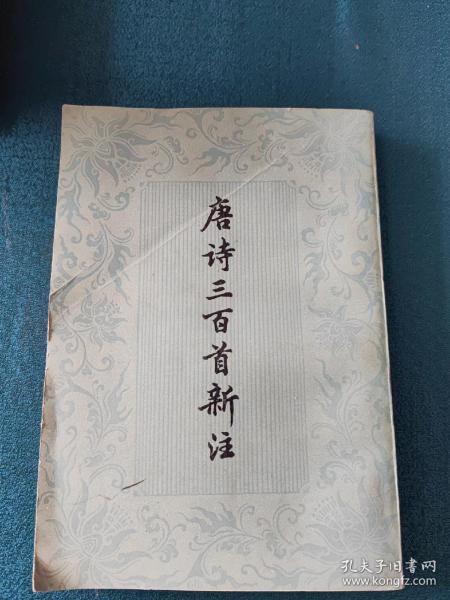 唐诗三百首新注
孔夫子旧书网
www.kongfz.com